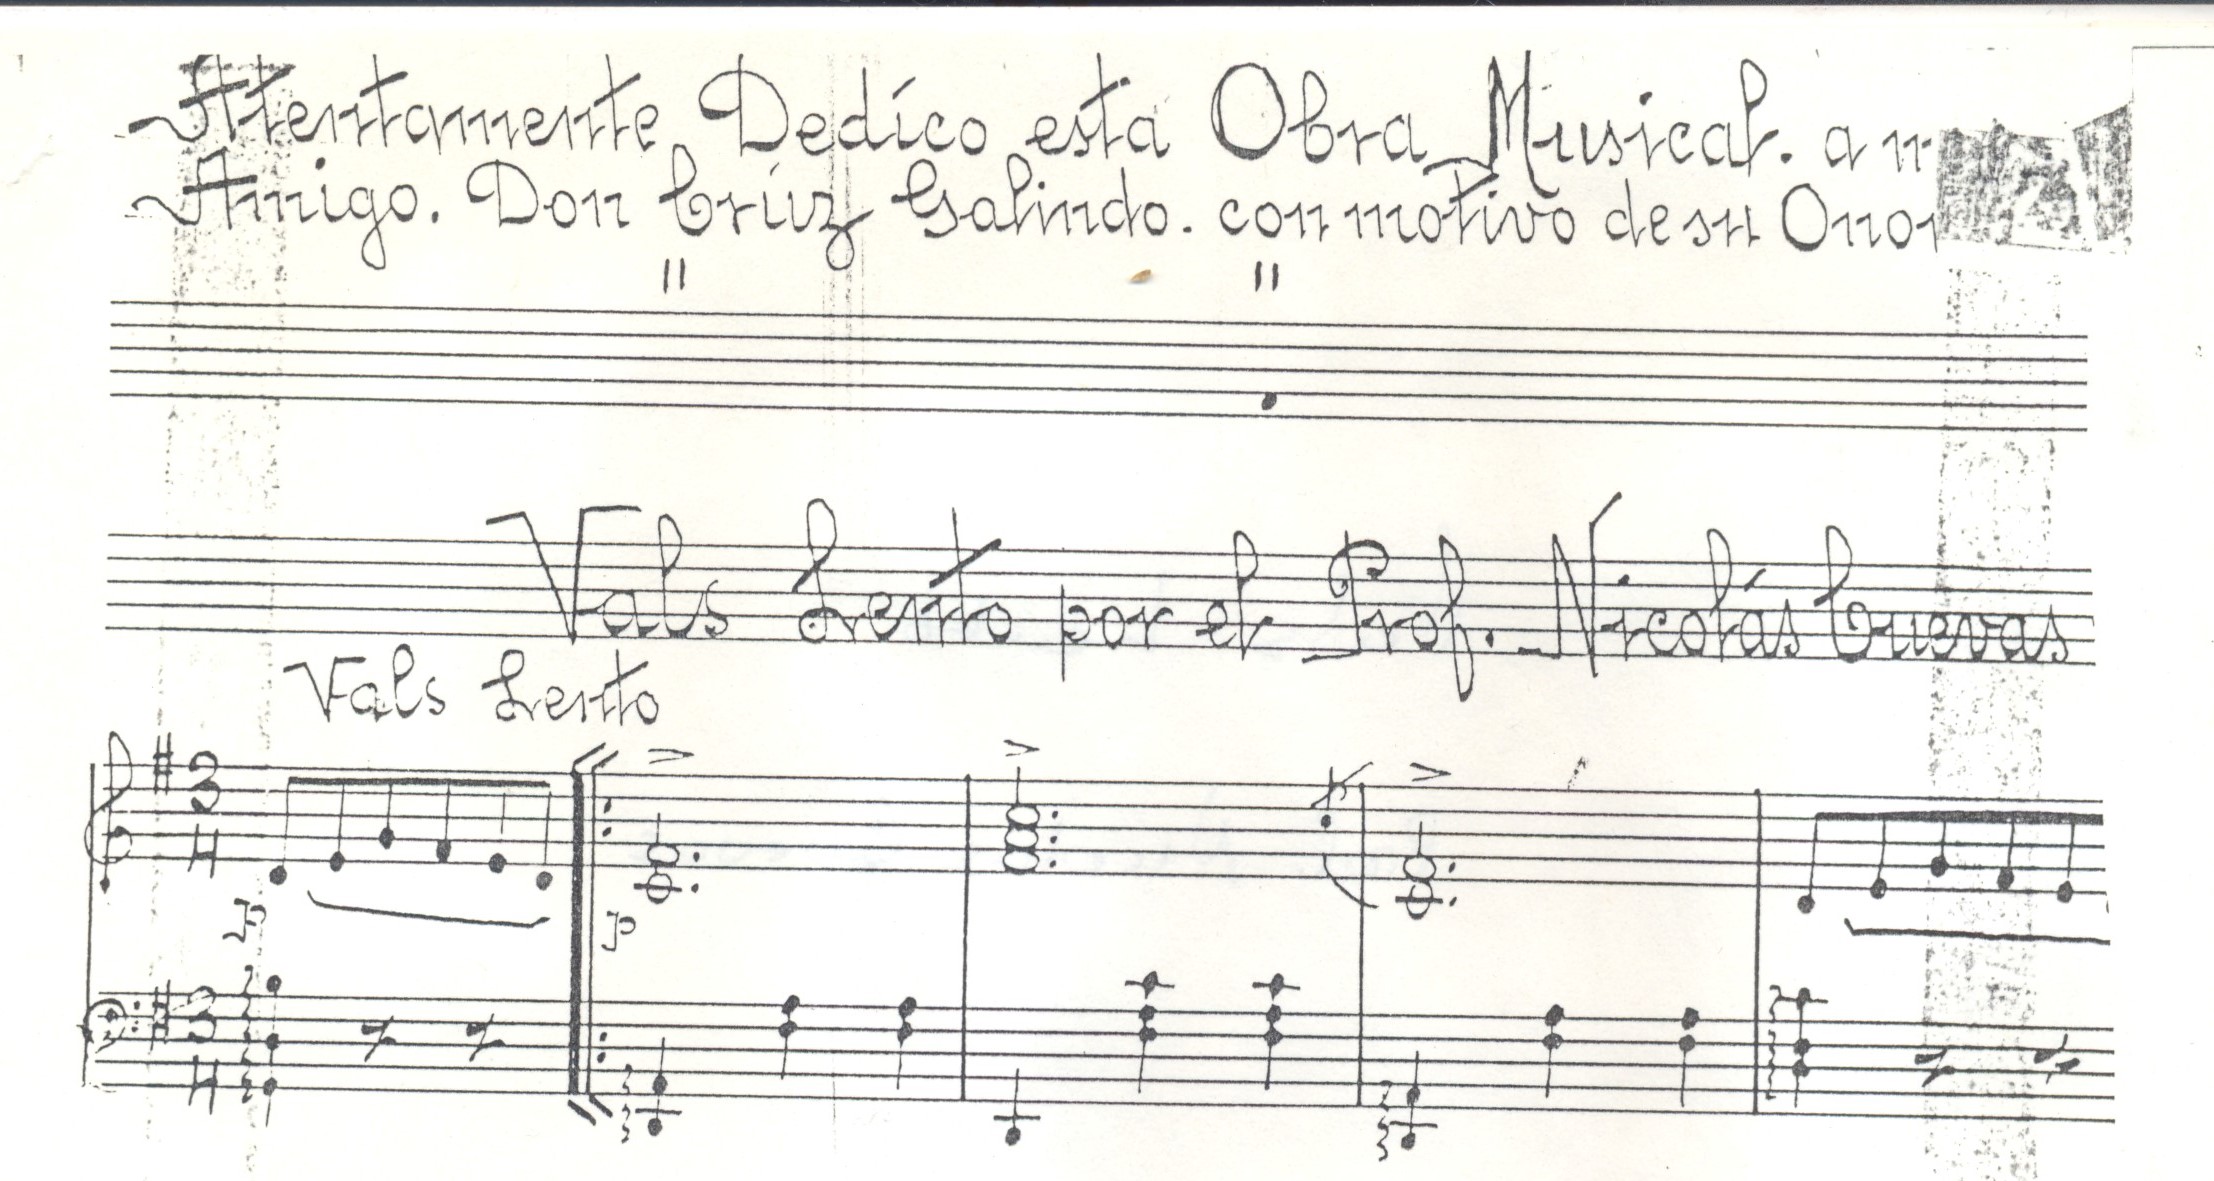 Atentamente Dedico esta Obra Musical. a
Amigo. Don Crúz Galindo. con motivo de su
" "
Vals Lento por el Prof. Nicolás Cuevas
Vals Lento
3 4
P P
3 4